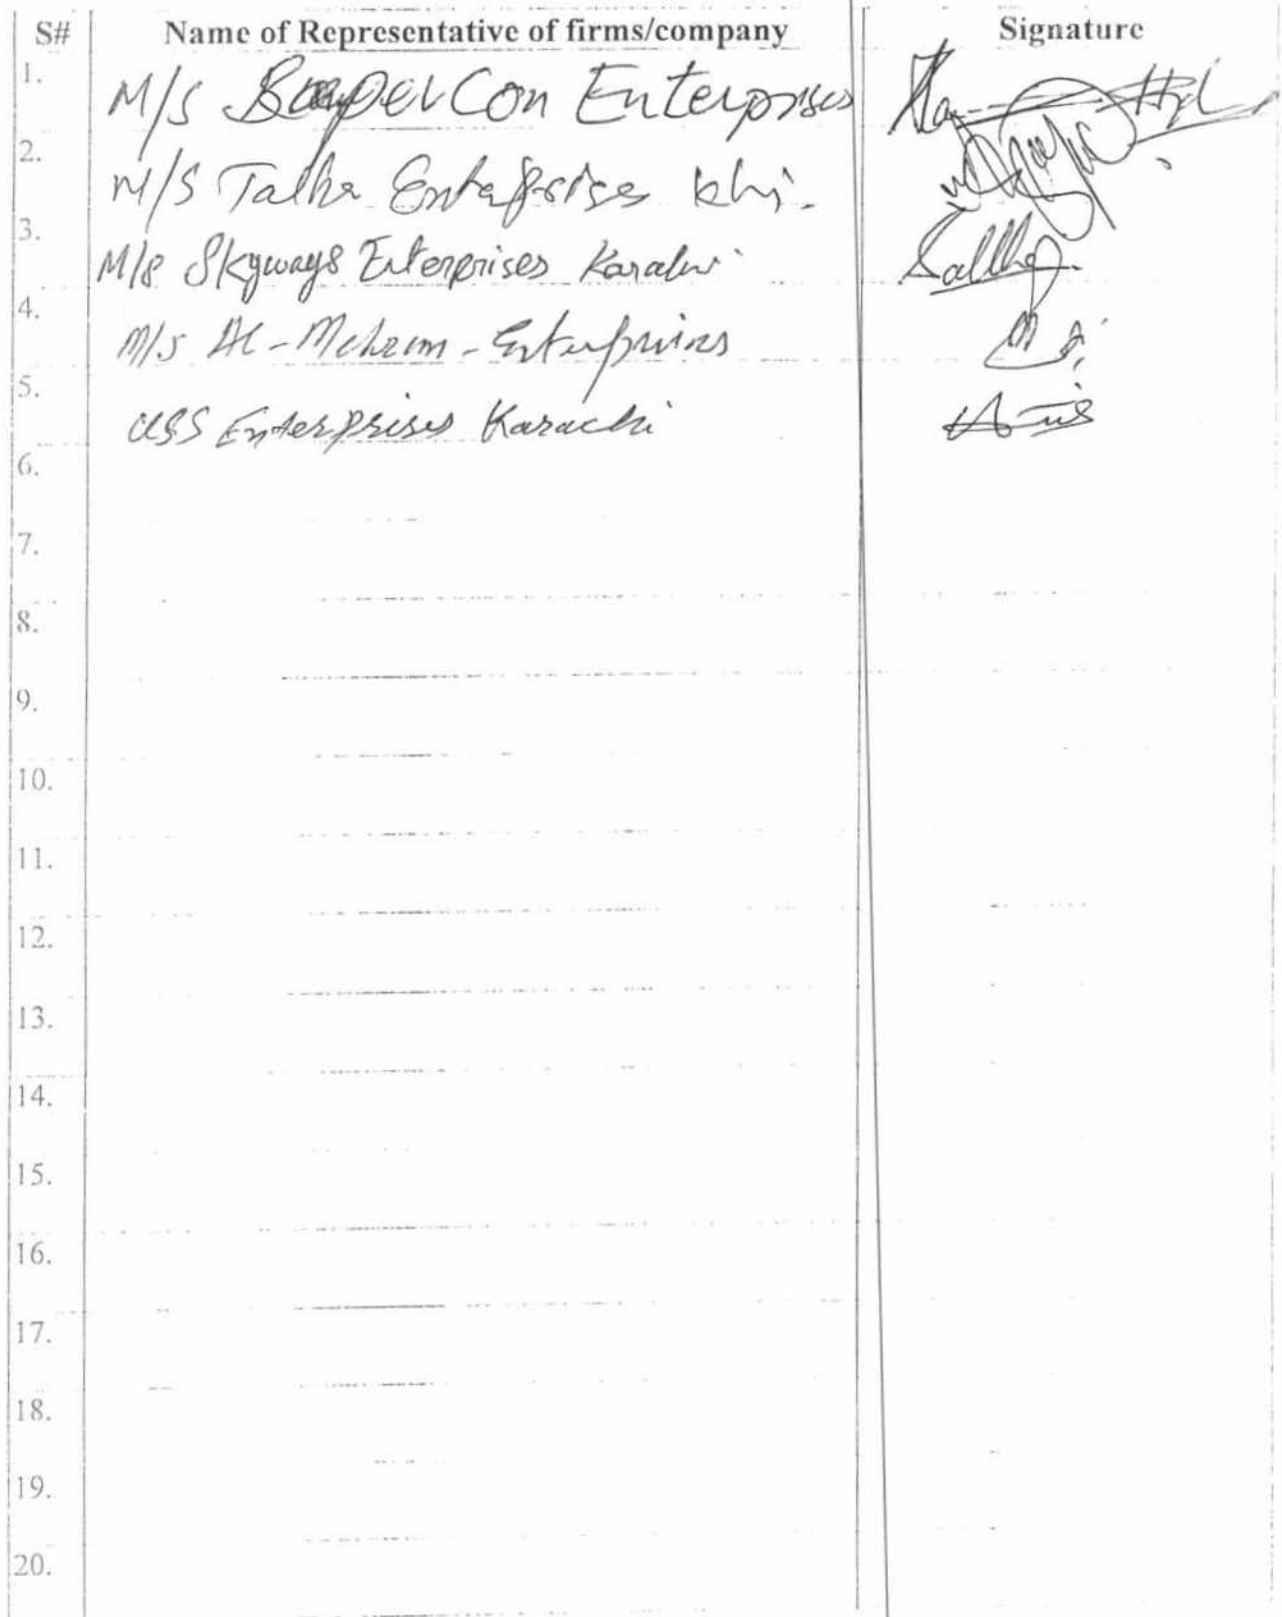 S# Name of Representative of firms/company Signature
1. M/S Con Enterprises Hyd
2. M/S Talha Enterprises Khi.
3. M/S Skyways Enterprises Karachi
4. M/S Al-Mehram-Enterprises
5. USS Enterprises Karachi
6.
7.
8.
9.
10.
11.
12.
13.
14.
15.
16.
17.
18.
19.
20.